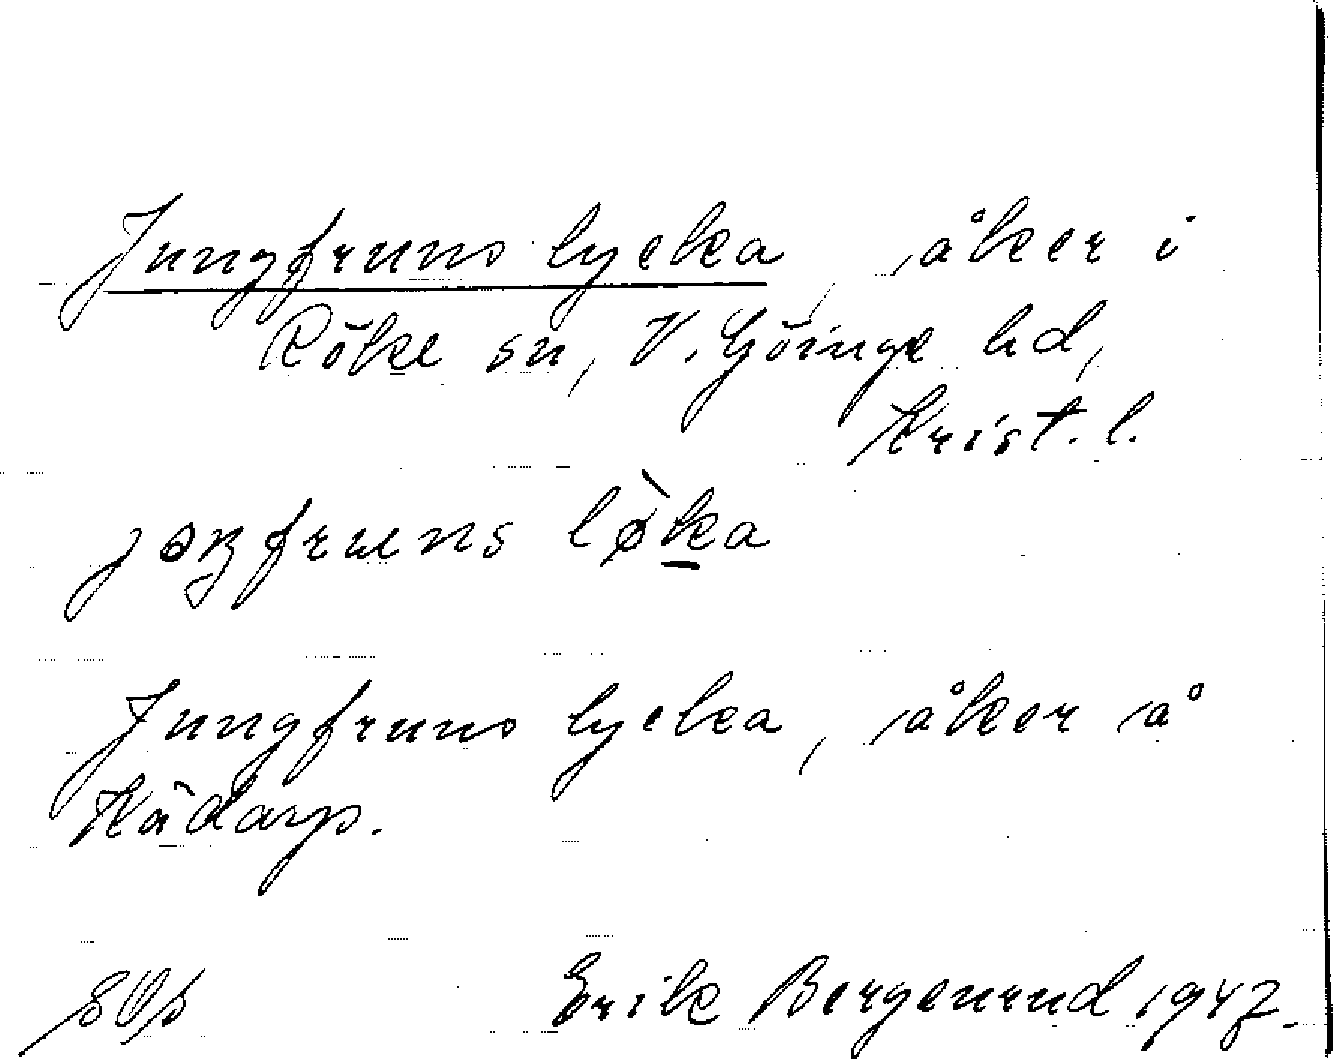 Jungfruns lycka, åker i
Röke sn, V. Göinge hd,
Krist. l.
jɵŋfruns lø̀ka
Jungfruns lycka, åker å
Kädarp.
Erik Bergenrud 1947.